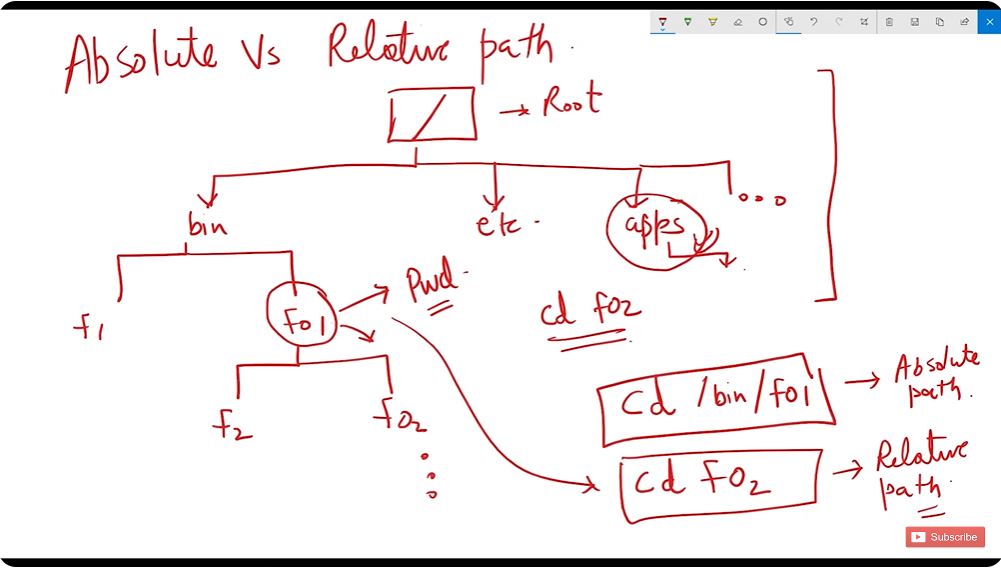 Absolute Vs Relative path.
/ → Root
bin
etc.
apps
f1
fo1
Pwd
cd fo2
f2
fo2
cd /bin/fo1 → Absolute path.
cd fo2 → Relative path.
Subscribe